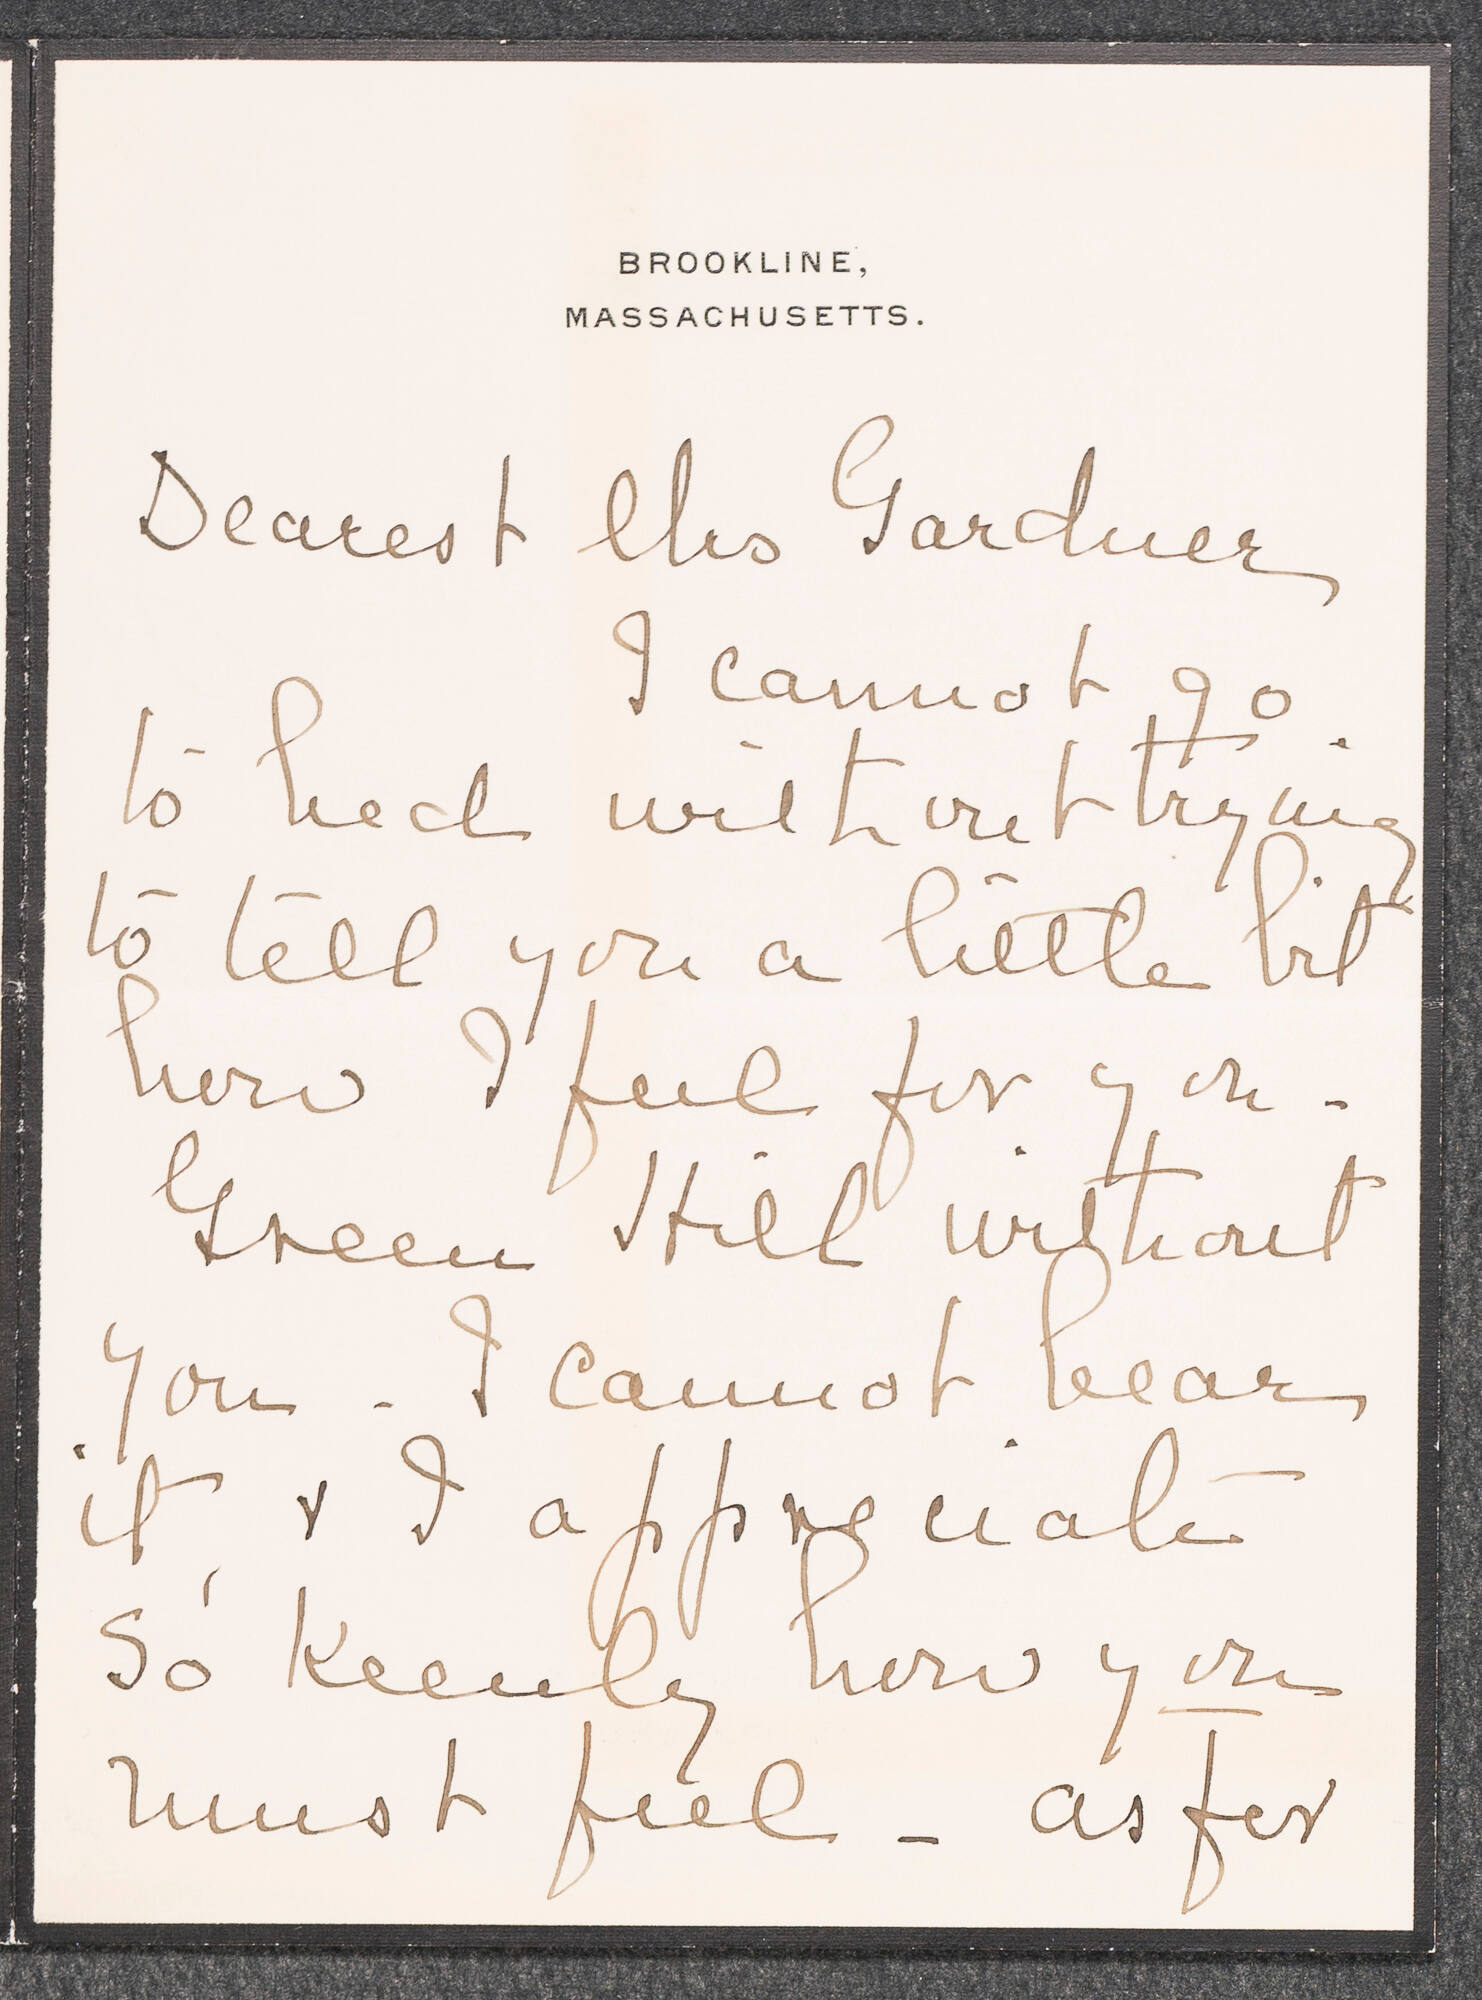 BROOKLINE,
MASSACHUSETTS.
Dearest Mrs Gardner
I cannot go
to bed without trying
to tell you a little bit
how I feel for you -
Green Hill without
you - I cannot bear
it & I appreciate
so keenly how you
must feel - as for